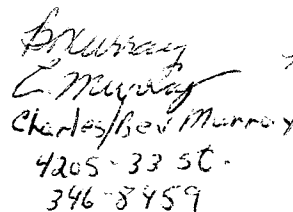 B Murray
C. Murray
Charles/Bev Murray
4205-33 St.
346-8459